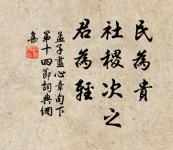 民為貴
社稷次之
君為輕
孟子盡心章句下
第十四節詞典網
集